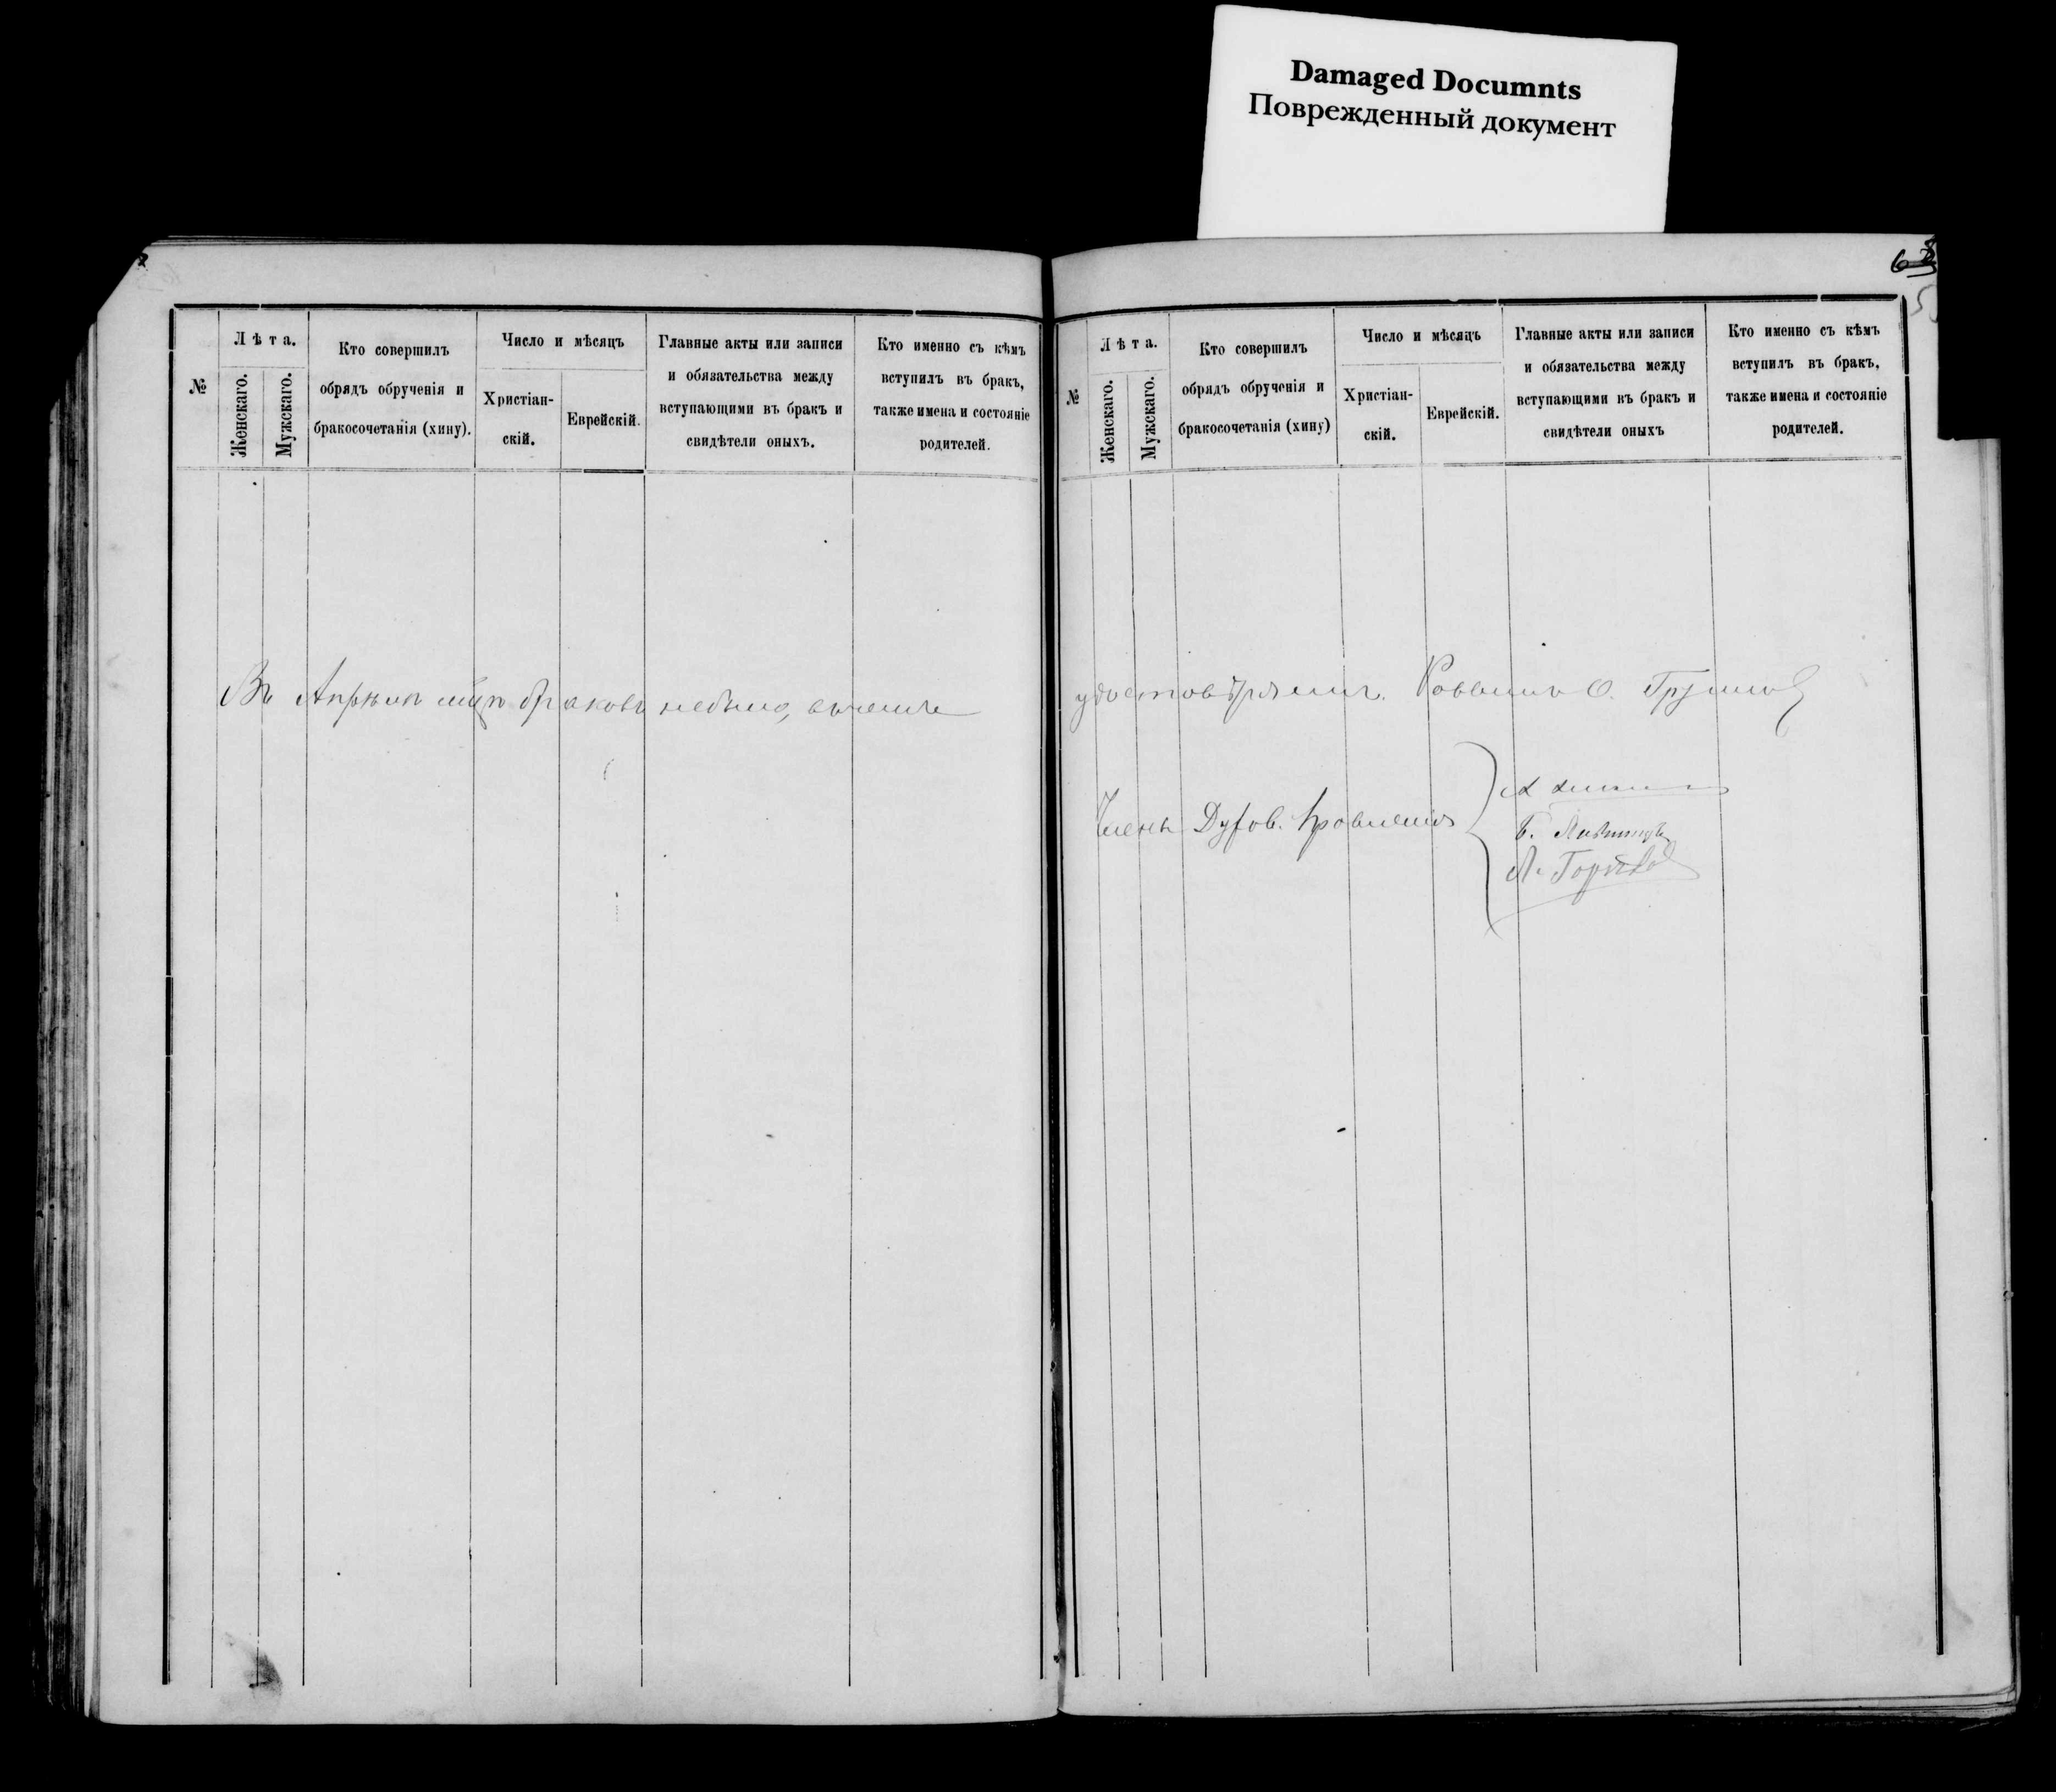 Damaged Documnts
Поврежденный документ
№
Лѣта.
Женскаго.
Мужскаго.
Кто совершилъ
обрядъ обрученія и
бракосочетанія (хину).
Число и мѣсяцъ
Христіан-
скій.
Еврейскій.
Главные акты или записи
и обязательства между
вступающими въ бракъ и
свидѣтели оныхъ.
Кто именно съ кѣмъ
вступилъ въ бракъ,
также имена и состояніе
родителей.
Въ Апрѣлѣ браковъ небыло,
№
Лѣта.
Женскаго.
Мужскаго.
Кто совершилъ
обрядъ обрученія и
бракосочетанія (хину)
Число и мѣсяцъ
Христіан-
скій.
Еврейскій.
Главные акты или записи
и обязательства между
вступающими въ бракъ и
свидѣтели оныхъ
Кто именно съ кѣмъ
вступилъ въ бракъ,
также имена и состояніе
родителей.
удостовѣряемъ. Раввинъ О.
Члены Духов. Правленія
Б.